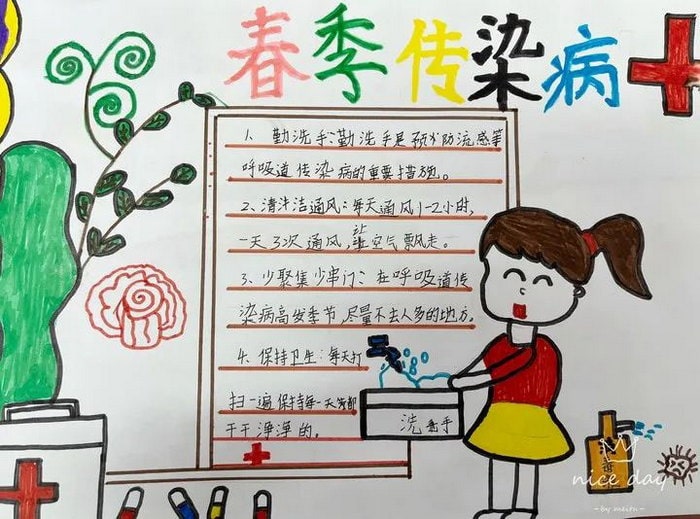 春季传染病
1、勤洗手:勤洗手是预防流感等
呼吸道传染病的重要措施。
2、清洁通风:每天通风1-2小时,
一天3次通风,让空气飘走。
3、少聚集少串门:在呼吸道传
染病高发季节,尽量不去人多的地方.
4、保持卫生:每天打
扫一遍保持每一天
干干净净的。
洗手
nice day